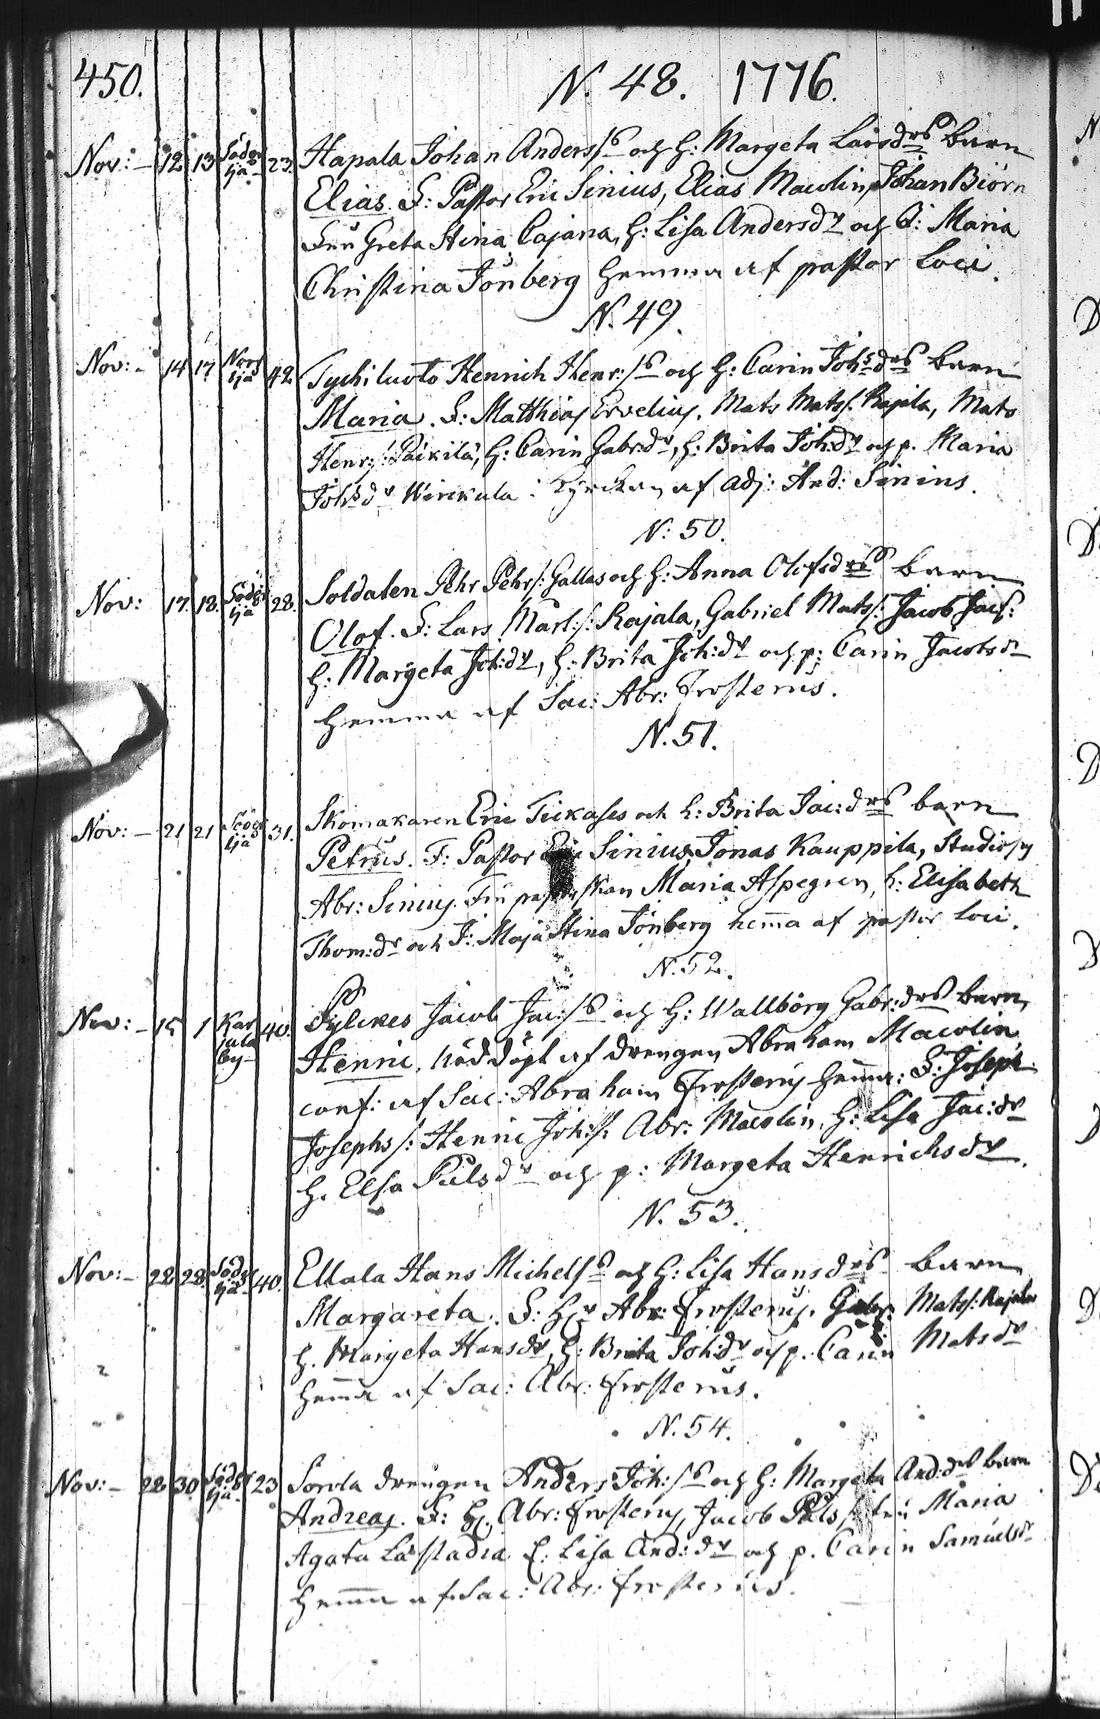 450.
N. 48. 1776.
Nov: – 12 13 Söder sjä 23. Hapala Johan Anders/s och h: Margeta Larsdrs barn
Elias. F: Pastor Eric Sinius, Elias Macolin, Johan Biörn
Fru Greta Stina Cajana, h: Lisa Andersdr och J: Maria
Christina Jönberg hemma af pastor Loci.
N. 49.
Nov: – 14 17 Norr sjä 42 Tychiluoto Henrich Henr:/s och h: Carin Johsdrs barn
Maria. F: Matthias Ervelius, Mats Mats/: Rajala, Mats
Henr:/: Päikilä, h: Carin Gabr:dr, h: Brita Joh:dr och p. Maria
Johsdr Wirckula i Kyrckan af Adj: And: Sinius.
N: 50.
Nov: 17. 18. Söder sjä 28. Soldaten Pehr Pehr/: Gallas och h: Anna Olofsdrs barn
Olof. F: Lars Mart:/: Rajala, Gabriel Mats/: Jacob Jac/:
h: Margeta Joh:dr, h: Brita Joh:dr och p: Carin Jacobsdr
hemma af Sac: Abr: Frosterus.
N. 51.
Nov: – 21 21 sjä 31. Skomakaren Eric Tickases och h: Brita Jac:drs barn
Petrus. F: Pastor Eric Sinius, Jonas Kauppila, Studiosus
Abr: Sinius, Fru pastorskan Maria Aspegren, h: Elisabeth
Thom:dr och J: Maja Stina Jönberg hema af pastor loci.
N. 52.
Nov: – 15 1 Kar jala by 40. Pylckes Jacob Jac:/s och h: Wallborg Gabr:drs barn
Henric, nöddöpt af drengen Abraham Macolin
conf: af Sac: Abraham Frosterus hema: F: Joseph
Josephs/: Henric Joh:/: Abr: Macolin, h: Lisa Jac:dr
h. Elsa Pålsdr och p: Margeta Henrichsdr.
N. 53.
Nov: – 28 28. Söder sjä 40. Ellala Hans Michels/s och h: Lisa Hansdrs barn
Margareta. F: Hr Abr: Frosterus, Gabr. Mats/: Rajala
h. Margeta Hansdr, h: Brita Joh:dr och p. Carin Matsdr
hema af Sac: Abr: Frosterus.
N. 54.
Nov: – 28 30 Söder sjä. 23 Sorola drengen Anders Joh:/s och h: Margeta And:drs barn
Andreas. F: H. Abr: Frosterus, Jacob Påls/: fru Maria
Agata Læstadia h: Lisa And:dr och p. Carin Samuelsdr
hema af Sac: Abr: Frosterus.